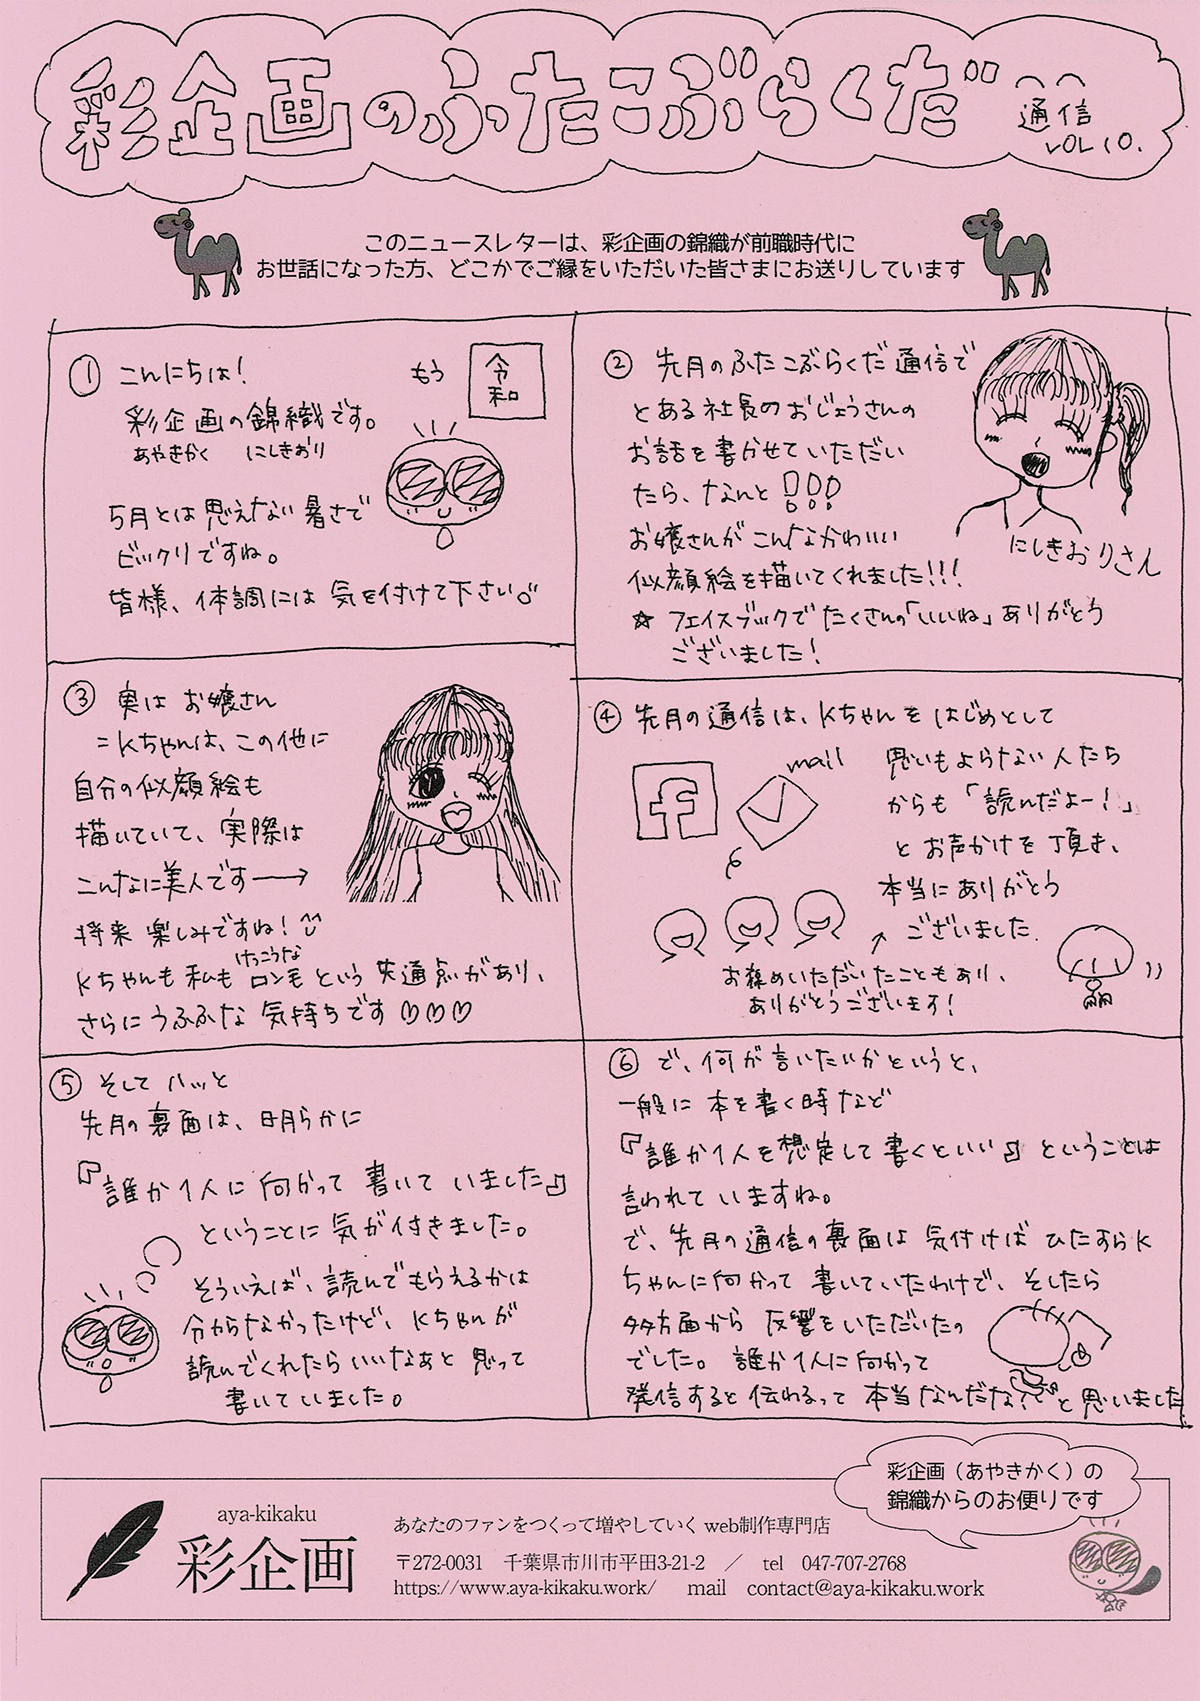 彩企画のふたこぶらくだ
通信
VOL 10.
このニュースレターは、彩企画の錦織が前職時代に
お世話になった方、どこかでご縁をいただいた皆さまにお送りしています
① こんにちは!
もう
令和
彩企画の錦織です。
あやきかく にしきおり
5月とは思えない暑さで
ビックリですね。
皆様、体調には気を付けて下さい
② 先月のふたこぶらくだ通信で
とある社長のおじょうさんの
お話を書かせていただい
たら、なんと!!!
お嬢さんがこんなかわいい
似顔絵を描いてくれました!!!
☆ フェイスブックでたくさんの「いいね」ありがとう
ございました!
にしきおりさん
③ 実はお嬢さん
=Kちゃんは、この他に
自分の似顔絵も
描いていて、実際は
こんなに美人です→
将来楽しみですね!
けっこうな
Kちゃんも私もロン毛という共通点があり、
さらにうふふな気持ちです♡♡♡
④ 先月の通信は、Kちゃんをはじめとして
mail
f
思いもよらない人たち
からも「読んだよー!」
とお声かけを頂き、
本当にありがとう
ございました.
お褒めいただいたこともあり、
ありがとうございます!
⑤ そしてハッと
先月の裏面は、明らかに
『誰か1人に向かって書いていました』
ということに気が付きました。
そういえば、読んでもらえるかは
分からなかったけど、Kちゃんが
読んでくれたらいいなあと思って
書いていました。
⑥ で、何が言いたいかというと、
一般に本を書く時など
『誰か1人を想定して書くといい』ということは
言われていますね。
で、先月の通信の裏面は気付けばひたすらK
ちゃんに向かって書いていたわけで、そしたら
多方面から反響をいただいたの
でした。誰か1人に向かって
発信すると伝わるって本当なんだな と思いました
彩企画(あやきかく)の
錦織からのお便りです
aya-kikaku
彩企画
あなたのファンをつくって増やしていくweb制作専門店
〒272-0031 千葉県市川市平田3-21-2 / tel 047-707-2768
https://www.aya-kikaku.work/ mail contact@aya-kikaku.work